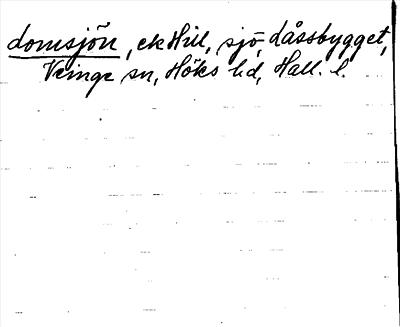 domsjön, ek Hill, sjö, dåssbygget,
Veinge sn, Höks hd, Hall. l.